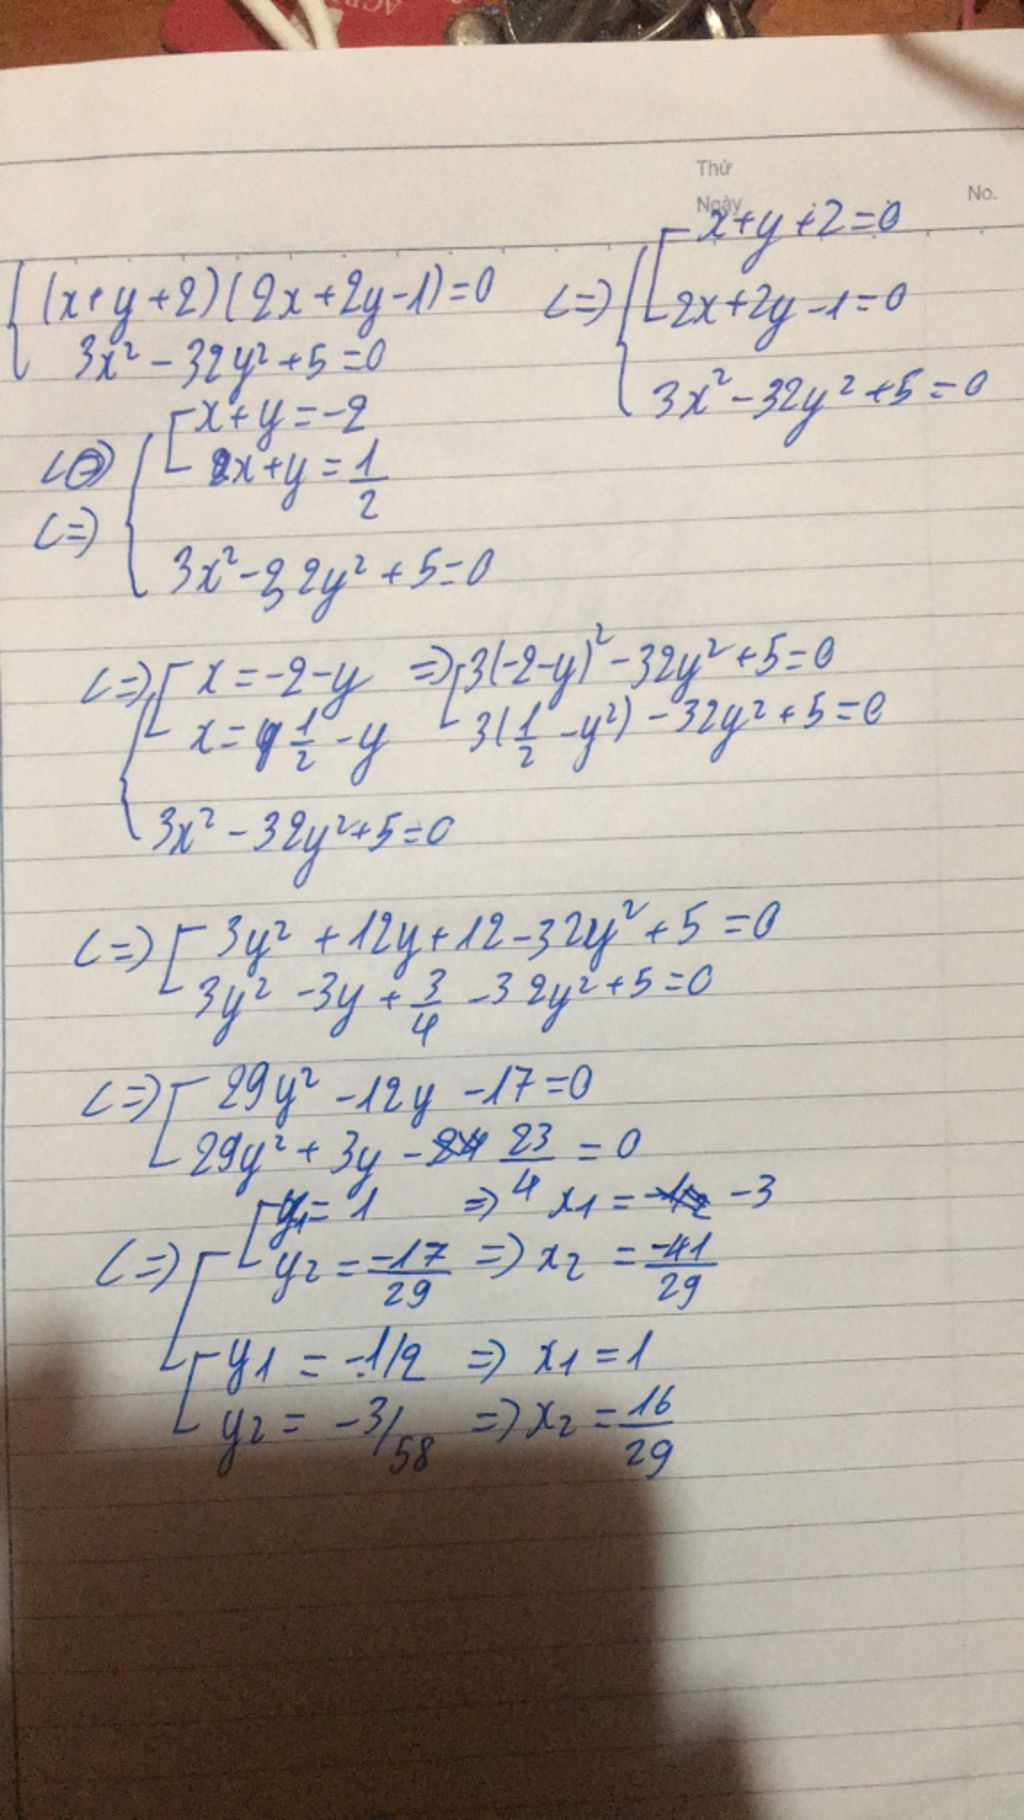 Thứ
Ngày
No.
{ (x+y+2)(2x+2y-1)=0
3x² - 32y² + 5 = 0
<=> { [ x+y+2=0
2x+2y-1=0
3x² - 32y² + 5 = 0
<=> { [ x+y=-2
x+y = 1/2
3x² - 32y² + 5 = 0
<=> { [ x = -2-y => [ 3(-2-y)² - 32y² + 5 = 0
x = 1/2 - y 3(1/2 - y²) - 32y² + 5 = 0
3x² - 32y² + 5 = 0
<=> [ 3y² + 12y + 12 - 32y² + 5 = 0
3y² - 3y + 3/4 - 32y² + 5 = 0
<=> [ 29y² - 12y - 17 = 0
29y² + 3y - 23/4 = 0
<=> [ [ y1 = 1 => x1 = -3
y2 = -17/29 => x2 = -41/29
[ y1 = -1/2 => x1 = 1
y2 = -3/58 => x2 = 16/29